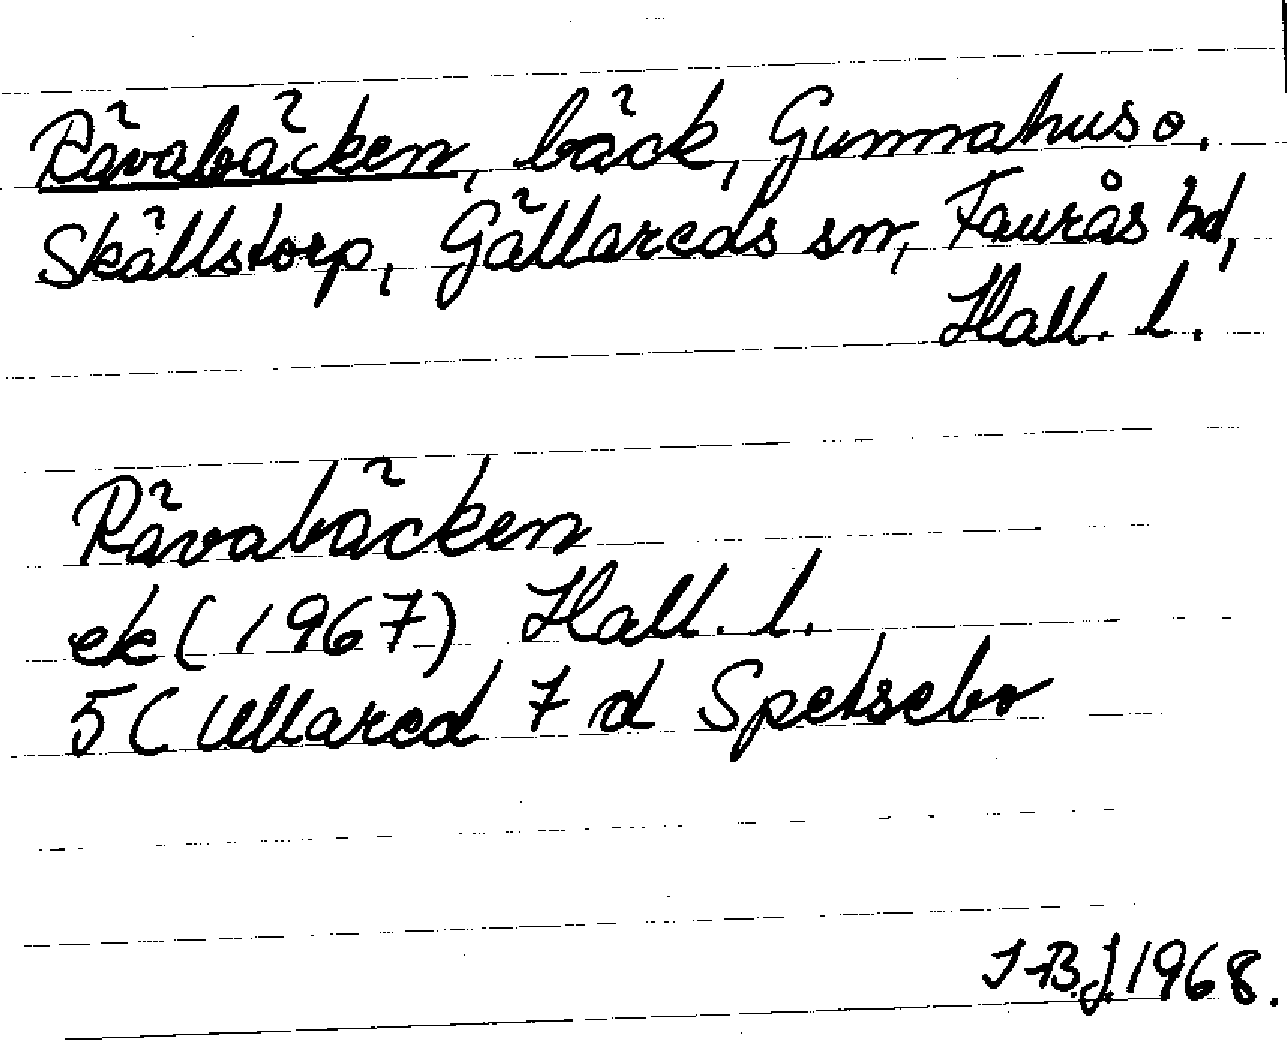 Rävabäcken, bäck, Gunnahus o.
Skällstorp, Gällareds sn, Faurås hd,
Hall. l.
Rävabäcken
ek (1967) Hall. l.
5C Ullared 7 d Spetsebo
I-B.J. 1968.